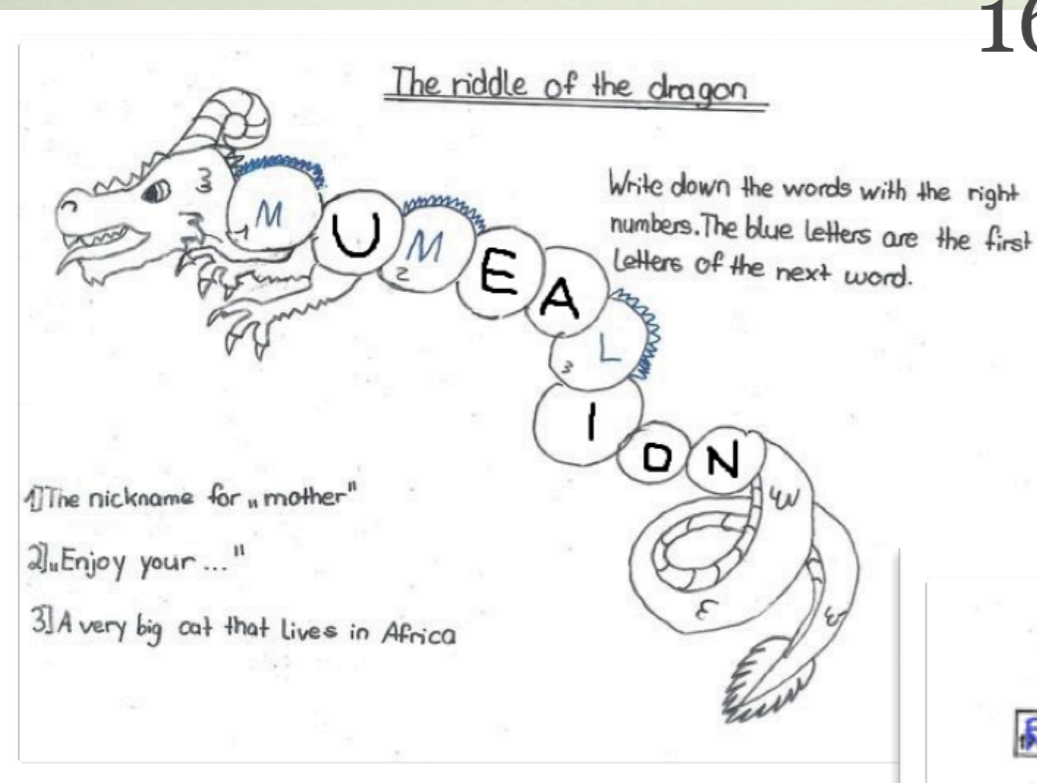 16
The riddle of the dragon
Write down the words with the right
numbers. The blue letters are the first
letters of the next word.
M
1
U
M
2
E
A
L
3
I
O
N
1] The nickname for „mother"
2] „Enjoy your ..."
3] A very big cat that lives in Africa